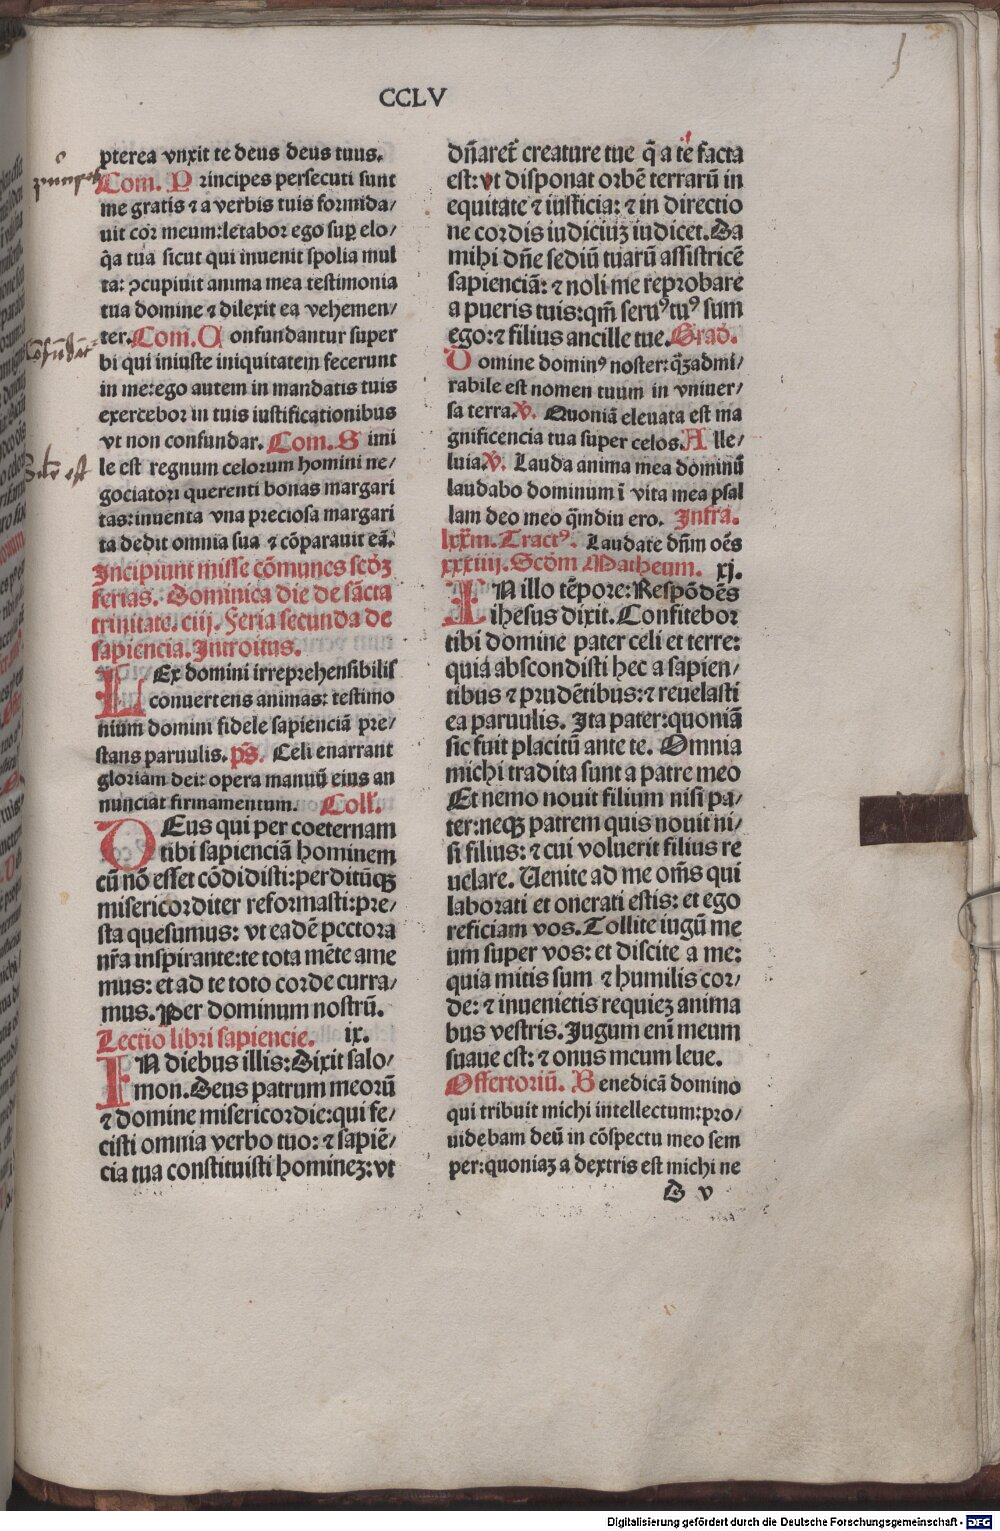 CCLV
pterea vnxit te deus deus tuus.
Com. Principes persecuti sunt
me gratis ⁊ a verbis tuis formida/
uit cor meum:letabor ego suꝑ elo/
q̃a tua sicut qui inuenit spolia mul
ta: ꝯcupiuit anima mea testimonia
tua domine ⁊ dilexit ea vehemen/
ter. Com. Confundantur super
bi qui iniuste iniquitatem fecerunt
in me:ego autem in mandatis tuis
exercebor in tuis iustificationibus
vt non confundar. Com. Simi
le est regnum celorum homini ne/
gociatori querenti bonas margari
tas:inuenta vna preciosa margari
ta dedit omnia sua ⁊ cõparauit eã.
Incipiunt misse cõmunes scd̃ꝫ
ferias. Dominica die de sãcta
trinitate. ciij. Feria secunda de
sapiencia. Introitus.
LEx domini irreprehensibilis
conuertens animas: testimo
nium domini fidele sapienciã pre/
stans paruulis. p̃s. Celi enarrant
gloriam dei: opera manuũ eius an
nunciat firmamentum. Coll̃.
DEus qui per coeternam
tibi sapienciã hominem
cũ nõ esset cõdidisti:perditũqꝫ
misericorditer reformasti:pre/
sta quesumus: vt eadẽ pectora
nr̃a inspirante:te tota mẽte ame
mus: et ad te toto corde curra/
mus. Per dominum nostrũ.
Lectio libri sapiencie. ix.
IN diebus illis: Dixit salo/
mon. Deus patrum meorũ
⁊ domine misericordie:qui fe/
cisti omnia verbo tuo: ⁊ sapiẽ/
cia tua constituisti homineꝫ: vt
dñaret̃ creature tue q̃ a te facta
est: vt disponat orbẽ terrarũ in
equitate ⁊ iusticia: ⁊ in directio
ne cordis iudiciuꝫ iudicet. Da
mihi dñe sediũ tuarũ assistricẽ
sapienciã: ⁊ noli me reprobare
a pueris tuis:qm̃ seruꝰ tuꝰ sum
ego:⁊ filius ancille tue. Grad.
Domine dominꝰ noster: q̃ꝫadmi/
rabile est nomen tuum in vniuer/
sa terra. V̾. Quoniã eleuata est ma
gnificencia tua super celos. Alle/
luia. V̾. Lauda anima mea dominũ
laudabo dominum ĩ vita mea psal
lam deo meo q̃mdiu ero. Infra.
lxx̃m. Tractꝰ. Laudate dñm oẽs
xxxiiij. Scd̃m Matheum. xj.
IN illo tẽpore: Respõdẽs
ihesus dixit. Confitebor
tibi domine pater celi et terre:
quia abscondisti hec a sapien/
tibus ⁊ prudẽtibus:⁊ reuelasti
ea paruulis. Ita pater:quoniã
sic fuit placitũ ante te. Omnia
michi tradita sunt a patre meo
Et nemo nouit filium nisi pa/
ter:neqꝫ patrem quis nouit ni/
si filius: ⁊ cui voluerit filius re
uelare. Uenite ad me om̃s qui
laborati et onerati estis: et ego
reficiam vos. Tollite iugũ me
um super vos: et discite a me:
quia mitis sum ⁊ humilis cor/
de: ⁊ inuenietis requieꝫ anima
bus vestris. Jugum eni̅ meum
suaue est: ⁊ onus meum leue.
Offertoriũ. Benedicã domino
qui tribuit michi intellectum:pro/
uidebam deũ in cõspectu meo sem
per:quoniaꝫ a dextris est michi ne
B v
Digitalisierung gefördert durch die Deutsche Forschungsgemeinschaft - DFG